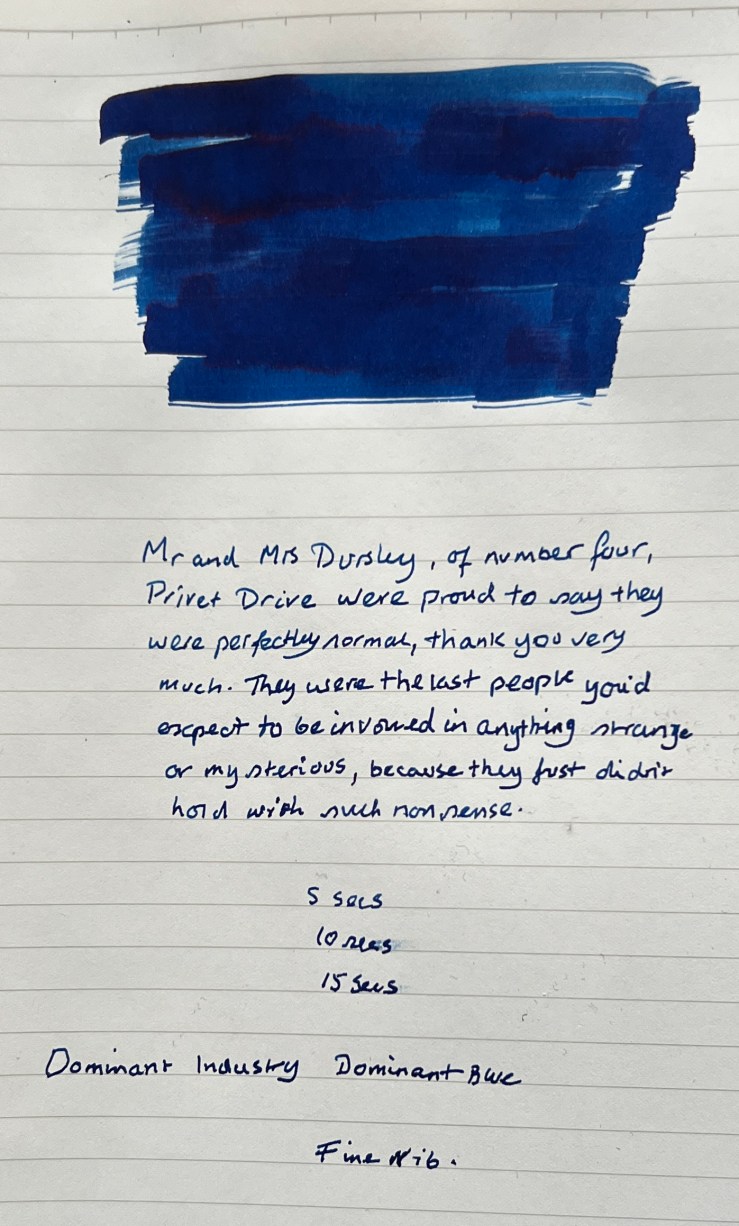 Mr and Mrs Dursley, of number four,
Privet Drive were proud to say they
were perfectly normal, thank you very
much. They were the last people you'd
expect to be involved in anything strange
or mysterious, because they just didn't
hold with such nonsense.
5 secs
10 secs
15 secs
Dominant Industry Dominant Blue
Fine Nib.